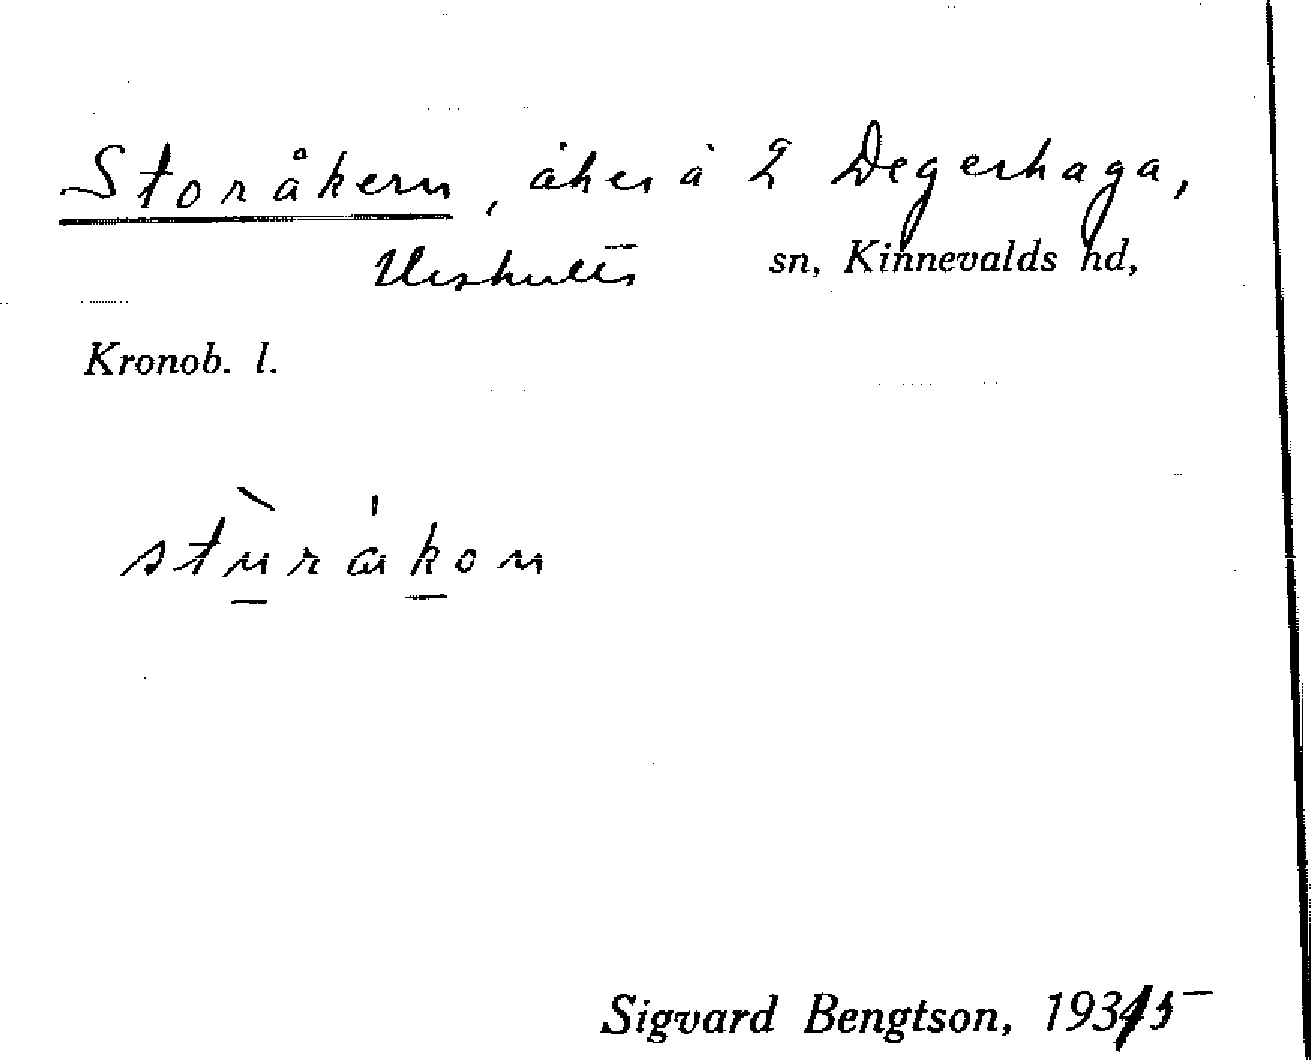 Storåkern, åker å 2 Degerhaga,
Urshults sn, Kinnevalds hd,
Kronob. l.
sturåkon
Sigvard Bengtson, 1935